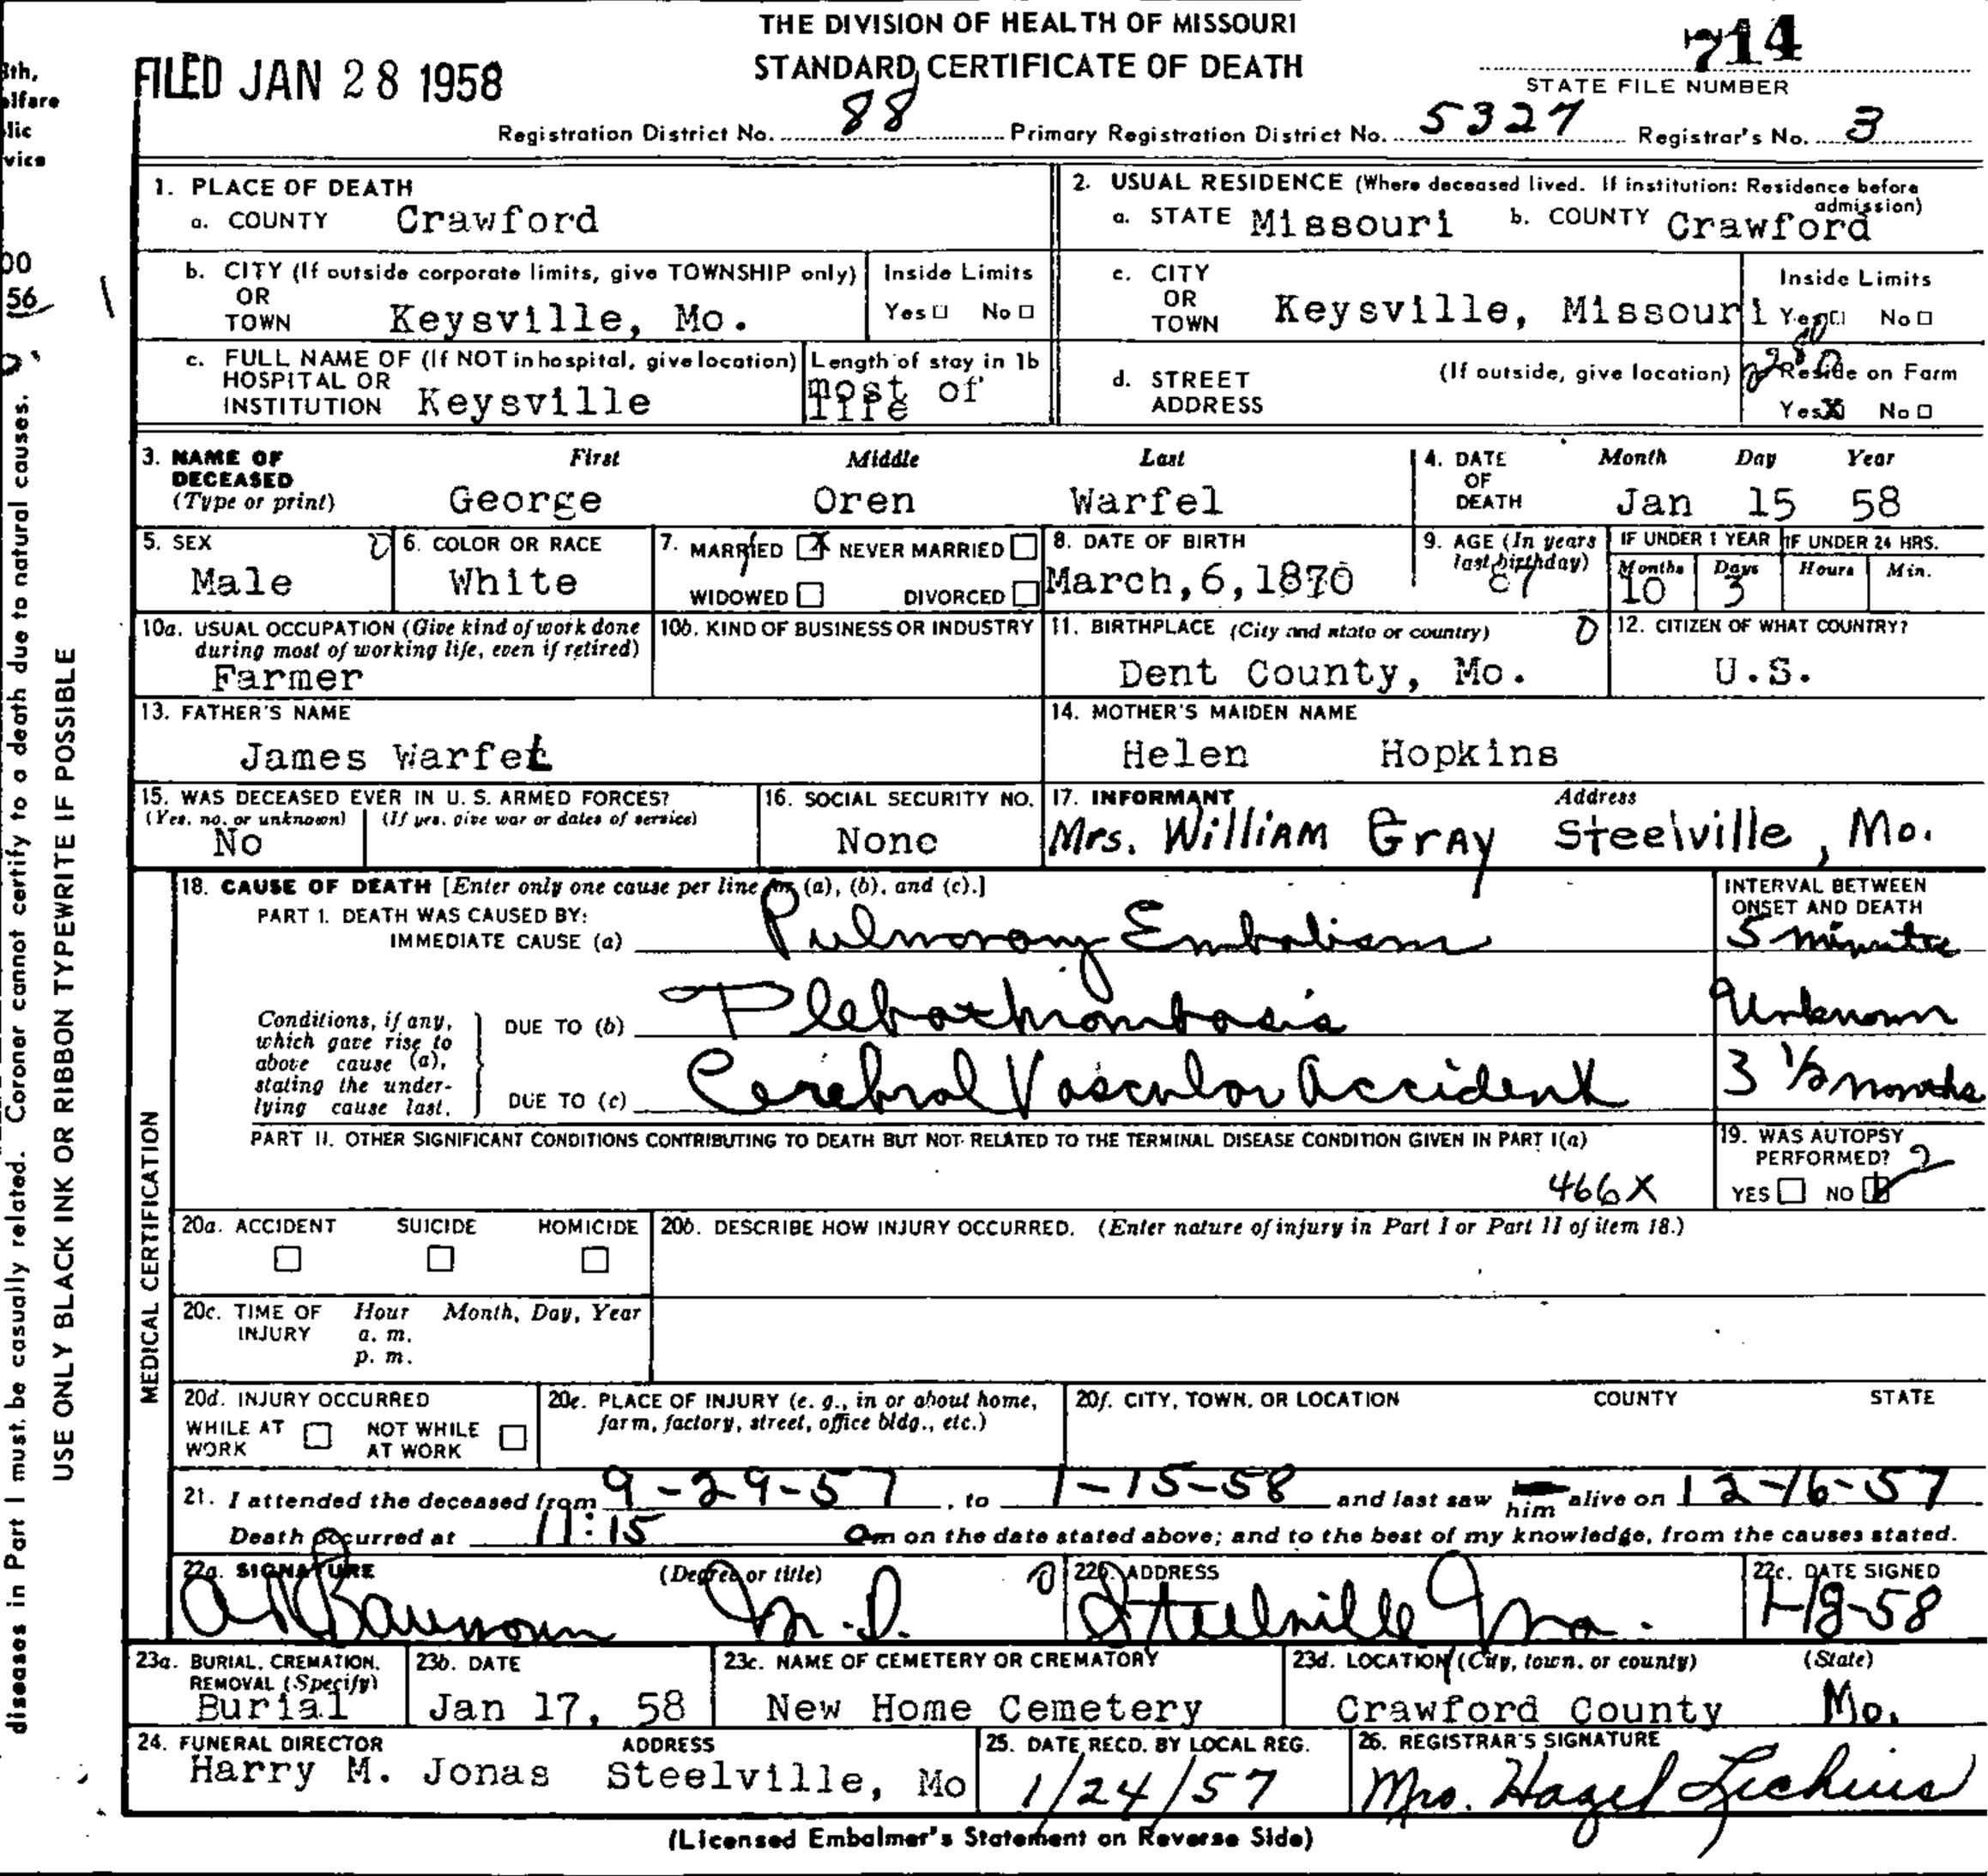 THE DIVISION OF HEALTH OF MISSOURI
STANDARD CERTIFICATE OF DEATH
FILED JAN 28 1958
714
STATE FILE NUMBER
Registration District No. 88 Primary Registration District No. 5327 Registrar's No. 3
1. PLACE OF DEATH
a. COUNTY Crawford
2. USUAL RESIDENCE (Where deceased lived. If institution: Residence before admission)
a. STATE Missouri b. COUNTY Crawford
b. CITY (If outside corporate limits, give TOWNSHIP only) OR TOWN Keysville, Mo.
Inside Limits Yes □ No □
c. CITY OR TOWN Keysville, Missouri
Inside Limits Yes □ No □
c. FULL NAME OF (If NOT in hospital, give location) HOSPITAL OR INSTITUTION Keysville
Length of stay in 1b most of life
d. STREET ADDRESS (If outside, give location)
Reside on Farm Yes X No □
3. NAME OF DECEASED (Type or print)
First Middle Last
George Oren Warfel
4. DATE OF DEATH Month Day Year
Jan 15 58
5. SEX Male
6. COLOR OR RACE White
7. MARRIED X NEVER MARRIED □
WIDOWED □ DIVORCED □
8. DATE OF BIRTH March,6,1870
9. AGE (In years last birthday) 87
IF UNDER 1 YEAR Months 10 Days 3
IF UNDER 24 HRS. Hours Min.
10a. USUAL OCCUPATION (Give kind of work done during most of working life, even if retired)
Farmer
10b. KIND OF BUSINESS OR INDUSTRY
11. BIRTHPLACE (City and state or country)
Dent County, Mo.
12. CITIZEN OF WHAT COUNTRY?
U.S.
13. FATHER'S NAME
James Warfel
14. MOTHER'S MAIDEN NAME
Helen Hopkins
15. WAS DECEASED EVER IN U. S. ARMED FORCES?
(Yes, no, or unknown) (If yes, give war or dates of service)
No
16. SOCIAL SECURITY NO.
None
17. INFORMANT Address
Mrs. William Gray Steelville, Mo.
MEDICAL CERTIFICATION
18. CAUSE OF DEATH [Enter only one cause per line for (a), (b), and (c).]
PART I. DEATH WAS CAUSED BY:
IMMEDIATE CAUSE (a) Pulmonary Embolism
INTERVAL BETWEEN ONSET AND DEATH
5 minutes
Conditions, if any, which gave rise to above cause (a), stating the underlying cause last.
DUE TO (b) Plebothrombosis Unknown
DUE TO (c) Cerebral Vascular Accident 3 1/2 months
PART II. OTHER SIGNIFICANT CONDITIONS CONTRIBUTING TO DEATH BUT NOT RELATED TO THE TERMINAL DISEASE CONDITION GIVEN IN PART I(a)
466X
19. WAS AUTOPSY PERFORMED? 2
YES □ NO ☑
20a. ACCIDENT SUICIDE HOMICIDE
20b. DESCRIBE HOW INJURY OCCURRED. (Enter nature of injury in Part I or Part II of item 18.)
20c. TIME OF INJURY Hour Month, Day, Year
a. m.
p. m.
20d. INJURY OCCURRED
WHILE AT WORK □ NOT WHILE AT WORK □
20e. PLACE OF INJURY (e. g., in or about home, farm, factory, street, office bldg., etc.)
20f. CITY, TOWN, OR LOCATION COUNTY STATE
21. I attended the deceased from 9-29-57, to 1-15-58 and last saw him alive on 12-16-57
Death occurred at 11:15 am on the date stated above; and to the best of my knowledge, from the causes stated.
22a. SIGNATURE (Degree or title)
M.D.
22b. ADDRESS
Steelville Mo.
22c. DATE SIGNED
1-18-58
23a. BURIAL, CREMATION, REMOVAL (Specify)
Burial
23b. DATE
Jan 17, 58
23c. NAME OF CEMETERY OR CREMATORY
New Home Cemetery
23d. LOCATION (City, town, or county) (State)
Crawford County Mo.
24. FUNERAL DIRECTOR ADDRESS
Harry M. Jonas Steelville, Mo
25. DATE RECD. BY LOCAL REG.
1/24/57
26. REGISTRAR'S SIGNATURE
Mrs. Hazel
(Licensed Embalmer's Statement on Reverse Side)
diseases in Part I must be casually related. Coroner cannot certify to a death due to natural causes.
USE ONLY BLACK INK OR RIBBON TYPEWRITE IF POSSIBLE